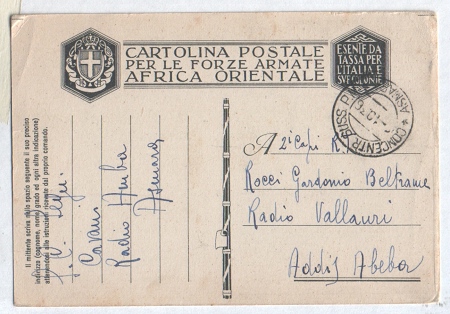 CARTOLINA POSTALE
PER LE FORZE ARMATE
AFRICA ORIENTALE
ESENTE DA
TASSA PER
L'ITALIA E
SVE COLONIE
* CONCENTR. BISS P
ASMARA
A 2i Capi R.
Rocci Gardonio Beltrame
Radio Vallauri
Addis Abeba
Il mittente scriva nello spazio seguente il suo preciso
indirizzo (cognome, nome, grado ed ogni altra indicazione)
attenendosi alle istruzioni ricevute dal proprio comando.
Radio Amba
Asmara